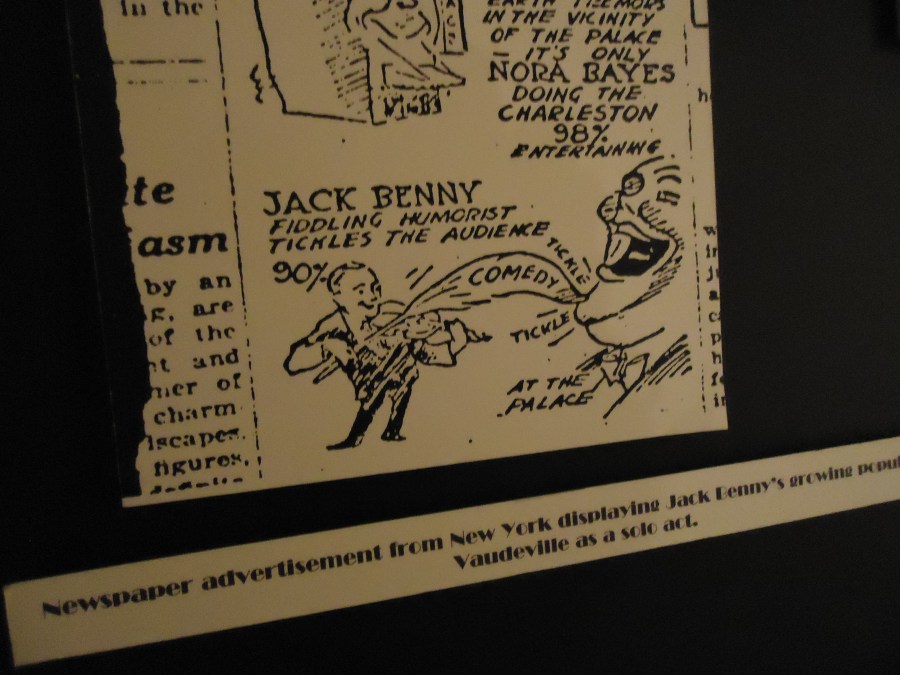 in the
EARTH TREMORS
IN THE VICINITY
OF THE PALACE
- IT'S ONLY
NORA BAYES
DOING THE
CHARLESTON
98%
ENTERTAINING
JACK BENNY
FIDDLING HUMORIST
TICKLES THE AUDIENCE
90%
COMEDY
TICKLE
TICKLE
AT THE
PALACE
te
asm
by an
g, are
of the
nt and
ner of
charm
lscapes.
figures,
Newspaper advertisement from New York displaying Jack Benny's growing popul
Vaudeville as a solo act.